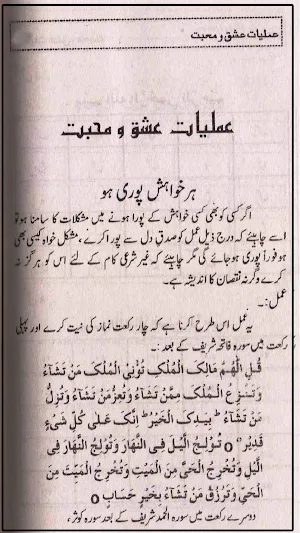 عملیات عشق و محبت
عملیات عشق و محبت
ہر خواہش پوری ہو
اگر کسی کو بھی کسی خواہش کے پورا ہونے میں مشکلات کا سامنا ہو تو
اسے چاہیئے کہ درج ذیل عمل کو صدق دل سے پورا کرے، مشکل خواہ کیسی بھی
ہو فوراً پوری ہو جائے گی مگر چاہیئے کہ غیر شرعی کام کے لئے اس کو ہرگز نہ
کرے وگرنہ نقصان کا اندیشہ ہے۔
عمل:۔
یہ عمل اس طرح کرنا ہے کہ چار رکعت نماز کی نیت کرے اور پہلی
رکعت میں سورہ فاتحہ شریف کے بعد:۔
قُلِ الْلّٰهُمَّ مَالِكَ الْمُلْكِ تُؤْتِي الْمُلْكَ مَنْ تَشَآءُ
وَتَنْزِعُ الْمُلْكَ مِمَّنْ تَشَآءُ وَتُعِزُّ مَنْ تَشَآءُ وَتُذِلُّ
مَنْ تَشَآءُ ط بِيَدِكَ الْخَيْرُ ط اِنَّكَ عَلٰى كُلِّ شَیْءٍ
قَدِيْرٌ o تُوْلِجُ الَّيْلَ فِی النَّهَارِ وَتُوْلِجُ النَّهَارَ فِی
الَّيْلِ وَتُخْرِجُ الْحَیَّ مِنَ الْمَيِّتِ وَتُخْرِجُ الْمَيِّتَ مِنَ
الْحَیِّ وَتَرْزُقُ مَنْ تَشَآءُ بِغَيْرِ حِسَابٍ o
دوسرے رکعت میں سورہ الحمد شریف کے بعد سورہ کوثر،